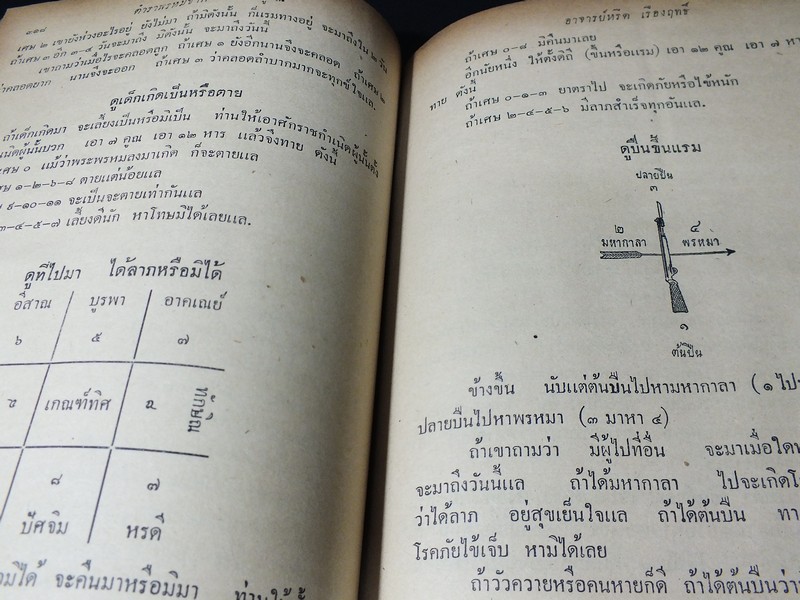 ๑๑๘
เศษ ๒ เขายังห่วงอะไรอยู่ ยังไม่มา ถ้ามิดังนั้น ก็แรมทางอยู่ จะมาถึงใน ๒ วัน
ถ้าเศษ ๓ อีก ๓-๔ วันจะมาถึง มิดังนั้น จะมาถึงวันนี้
เขาถามว่าเมื่อไรจะคลอดลูก ถ้าเศษ ๑ ยังอีกนานจึงจะคลอด ถ้าเศษ ๒
ว่าคลอดยาก นานจึงจะออก ถ้าเศษ ๓ ว่าคลอดลำบากมากจะทุกข์ใจแล.
ดูเด็กเกิดเป็นหรือตาย
ถ้าเด็กเกิดมา จะเลี้ยงเป็นหรือมิเป็น ท่านให้เอาศักราชกำเนิดผู้นั้นตั้ง
ผู้นั้นบวก เอา ๗ คูณ เอา ๑๒ หาร แล้วจึงทาย ดังนี้
เศษ ๐ แม้ว่าพระพรหมลงมาเกิด ก็จะตายแล
๑-๒-๖-๘ ตายแต่น้อยแล
๙-๑๐-๑๑ จะเป็นจะตายเท่ากันแล
๓-๔-๕-๗ เลี้ยงดีนัก หาโทษมิได้เลยแล.
ดูที่ไปมา ได้ลาภหรือมิได้
อีสาณ บูรพา อาคเณย์
๖ ๕ ๗
เกณฑ์ทิศ ทักษิณ
๘ ๗
ปัศจิม หรดี
จะคืนมาหรือมิมา
อาจารย์หรีด เรืองฤทธิ์
ถ้าเศษ ๐-๘ มิคืนมาเลย
อีกนัยหนึ่ง ให้ตั้งดิถี (ขึ้นหรือแรม) เอา ๑๒ คูณ เอา ๗
ทาย ดังนี้
ถ้าเศษ ๐-๑-๓ ยาตราไป จะเกิดภัยหรือไข้หนัก
ถ้าเศษ ๒-๔-๕-๖ มีลาภสำเร็จทุกอันแล.
ดูปืนขึ้นแรม
ปลายปืน
๓
๒ ๔
มหากาลา พรหมา
๑
ต้นปืน
ข้างขึ้น นับแต่ต้นปืนไปหามหากาลา (๑
ปลายปืนไปหาพรหมา (๓ มาหา ๔)
ถ้าเขาถามว่า มีผู้ไปที่อื่น จะมาเมื่อใด
จะมาถึงวันนี้แล ถ้าได้มหากาลา ไปจะเกิด
ว่าได้ลาภ อยู่สุขเย็นใจแล ถ้าได้ต้นปืน
โรคภัยไข้เจ็บ หามิได้เลย
ถ้าวัวควายหรือคนหายก็ดี ถ้าได้ต้นปืน